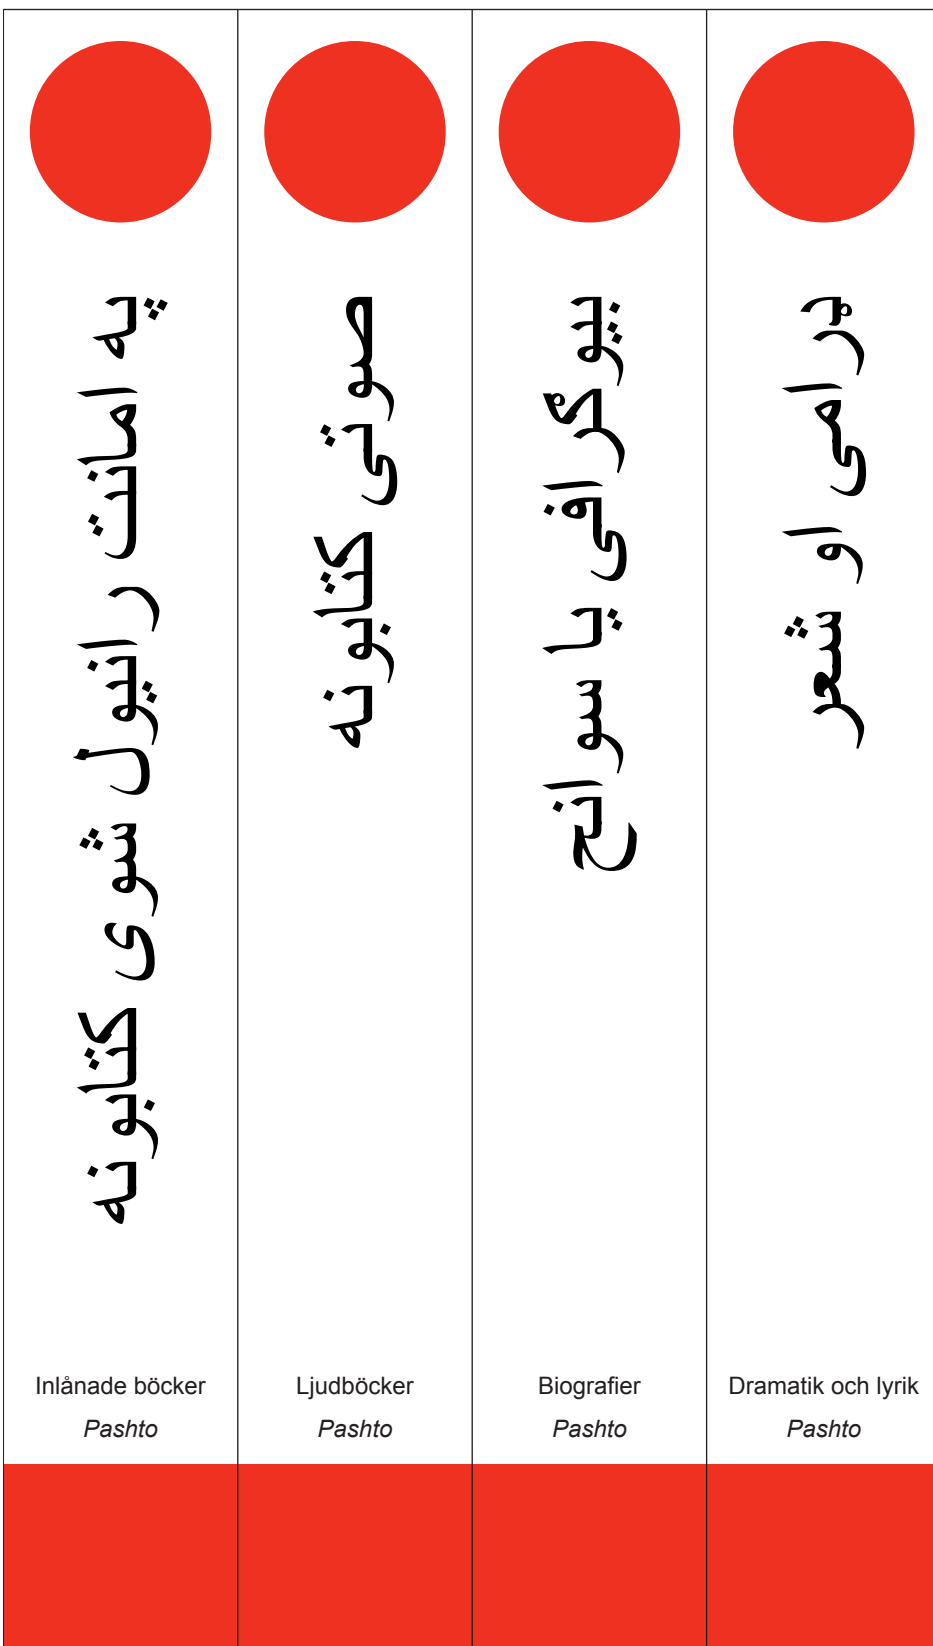 په امانت رانیول شوی کتابونه
Inlånade böcker
Pashto
صوتی کتابونه
Ljudböcker
Pashto
بیوګرافی یا سوانح
Biografier
Pashto
ډرامی او شعر
Dramatik och lyrik
Pashto